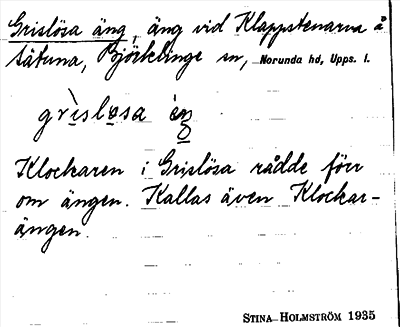 Grislösa äng, äng vid Klappstenarna å
sätuna, Björklinge sn, Norunda hd, Upps. l.
grìslosa
Klockaren i Grislösa rådde förr
om ängen. Kallas även Klockar-
ängen.
STINA HOLMSTRÖM 1935